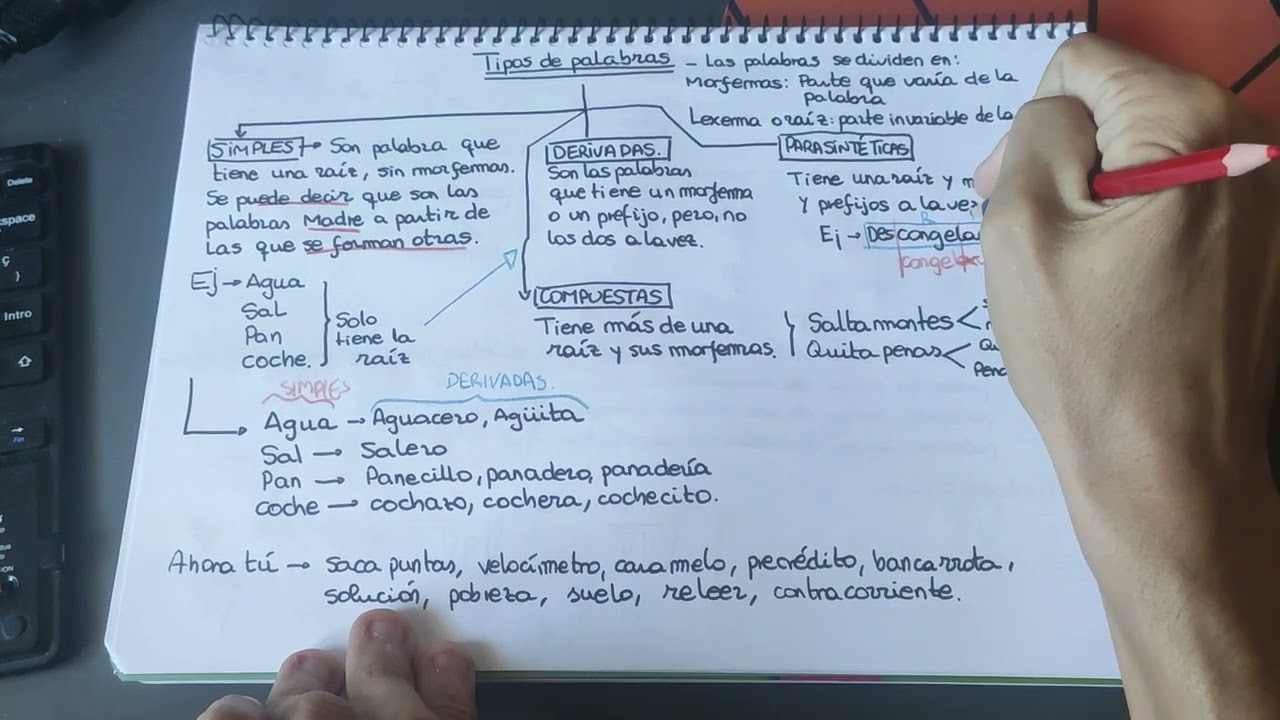 Tipos de palabras - Las palabras se dividen en:
Morfermas: Parte que varía de la
palabra
Lexema o raíz: parte invariable de la
SIMPLES → Son palabra que
tiene una raíz, sin morfermas.
Se puede decir que son las
palabras Madre a partir de
las que se forman otras.
Ej → Agua
Sal
Pan
coche.
Solo
tiene la
raíz
DERIVADAS.
Son las palabras
que tiene un morfema
o un prefijo, pero, no
los dos a la vez.
PARASINTÉTICAS
Tiene una raíz y
Y prefijos a la vez
Ej → Descongela
congela
COMPUESTAS
Tiene más de una
raíz y sus morfermas.
Saltamontes
Quita penas
SIMPLES DERIVADAS.
Agua → Aguacero, Agüita
Sal → Salero
Pan → Panecillo, panadero, panadería
coche → cochazo, cochera, cochecito.
Ahora tú → saca puntas, velocímetro, caramelo, pecrédito, bancarrota,
solución, pobreza, suelo, releer, contracorriente.
Delete
space
Ç
}
Intro
Fin